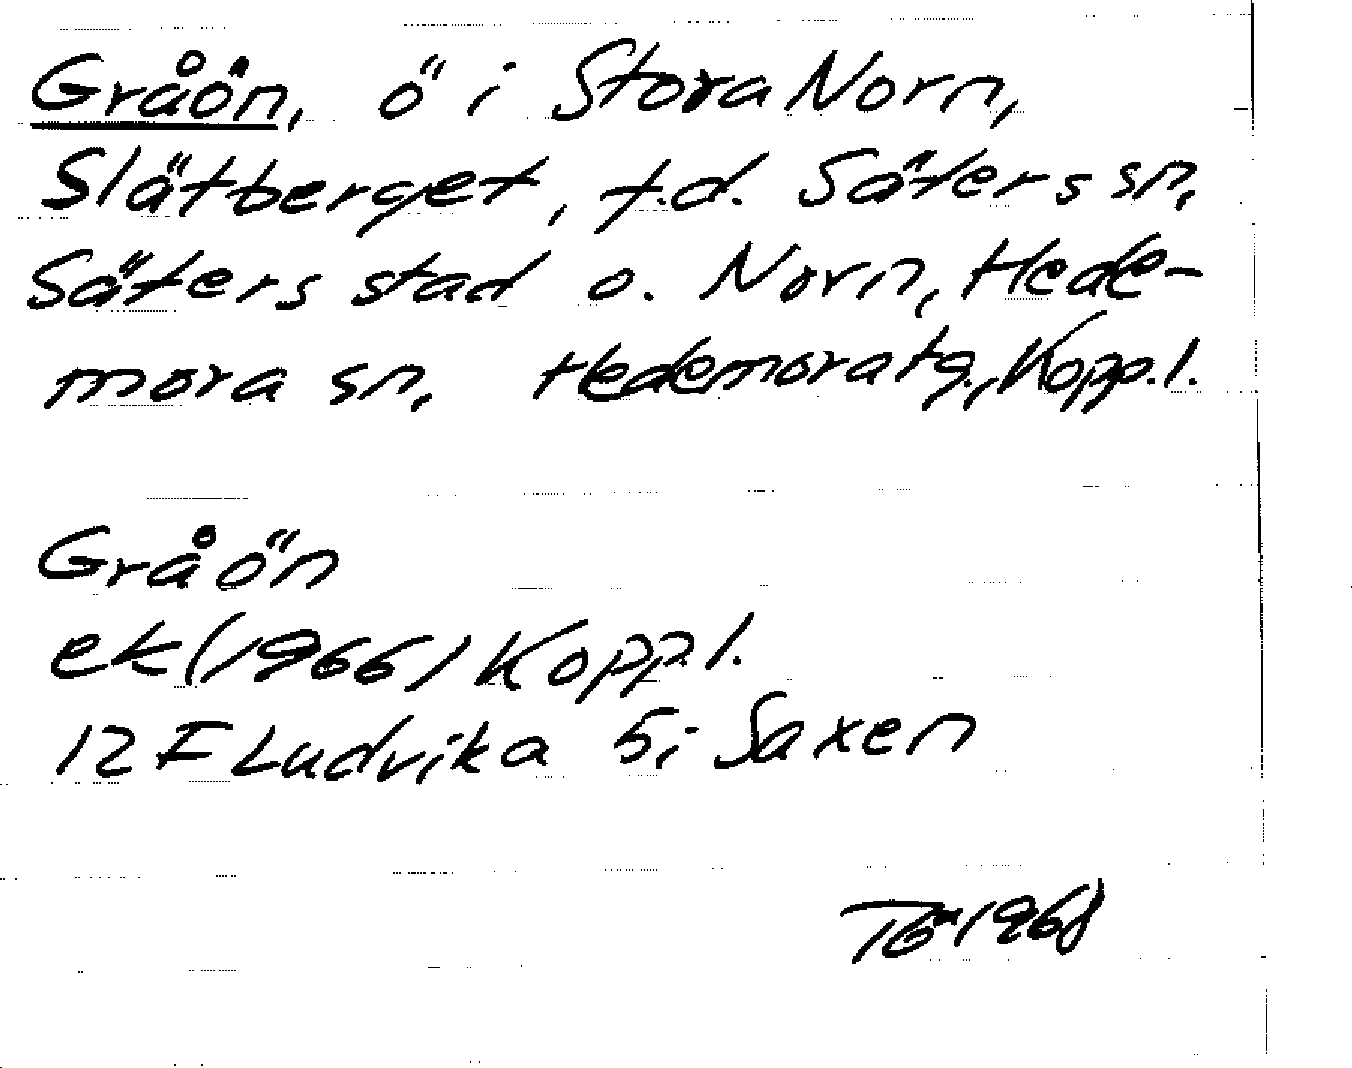 Gråön, ö i Stora Norn,
Slätberget, t.d. Säters sn,
Säters stad o. Norn, Hede-
mora sn, Hedemoratg., Kopp.l.
Gråön
ek (1966) Kopp.l.
12 F Ludvika 5i Saxen
1968